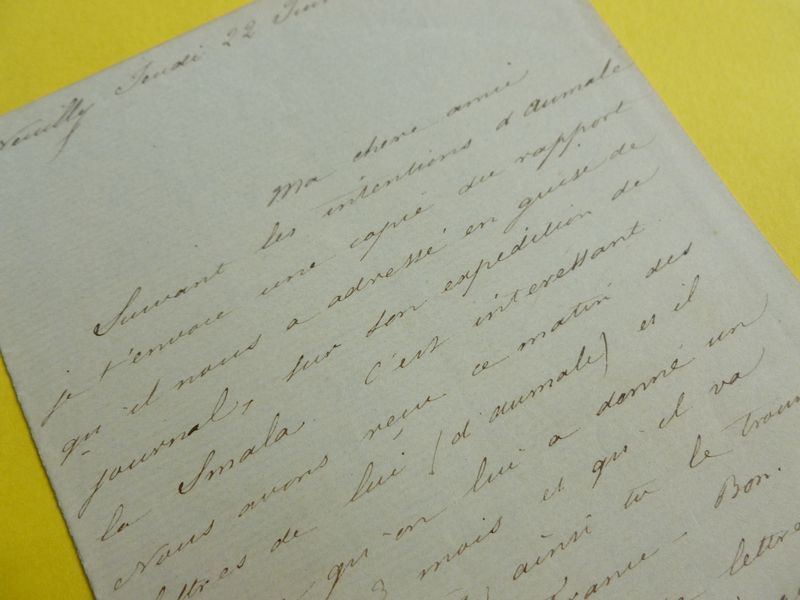 Neuilly Jeudi 22 Juin
Ma chere amie
Suivant les intentions d'aumale
je t'envoie une copie du rapport
qu'il nous a adressé en guise de
journal, sur son expédition de
la Smala. C'est interessant.
Nous avons reçu ce matin des
lettres de lui (d'aumale) et il
qu'on lui a donné un
3 mois et qu'il va
ainsi tu le
France. Bon.
lettre